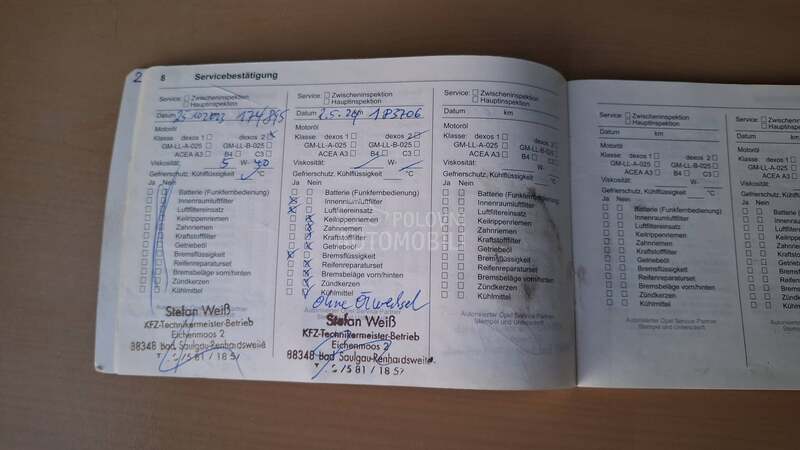 2
8 Servicebestätigung
Service: Zwischeninspektion
Hauptinspektion
Datum 174895 km
Motoröl
Klasse: dexos 1 dexos 2
GM-LL-A-025 GM-LL-B-025
ACEA A3 B4 C3
Viskosität: 5 W- 40
Gefrierschutz, Kühlflüssigkeit °C
Ja Nein
Batterie (Funkfernbedienung)
Innenraumluftfilter
Luftfiltereinsatz
Keilrippenriemen
Zahnriemen
Kraftstofffilter
Getriebeöl
Bremsflüssigkeit
Reifenreparaturset
Bremsbeläge vorn/hinten
Zündkerzen
Kühlmittel
Stefan Weiß
KFZ-Technikermeister-Betrieb
Eichenmoos 2
88348 Bad Saulgau-Renhardsweile
/5 81 / 18 57
Service: Zwischeninspektion
Hauptinspektion
Datum 2.5.24 183706
Motoröl
Klasse: dexos 1 dexos 2
GM-LL-A-025 GM-LL-B-025
ACEA A3 B4 C3
Viskosität: W-
Gefrierschutz, Kühlflüssigkeit °C
Ja Nein
Batterie (Funkfernbedienung)
Innenraumluftfilter
Luftfiltereinsatz
Keilrippenriemen
Zahnriemen
Kraftstofffilter
Getriebeöl
Bremsflüssigkeit
Reifenreparaturset
Bremsbeläge vorn/hinten
Zündkerzen
Kühlmittel
ohne Ölwechsel
Autorisierter Opel Service Partner
Stefan Weiß
KFZ-Technikermeister-Betrieb
Eichenmoos 2
88348 Bad Saulgau-Renhardsweile
/5 81 / 18 57
Service: Zwischeninspektion
Hauptinspektion
Datum km
Motoröl
Klasse: dexos 1 dexos 2
GM-LL-A-025 GM-LL-B-025
ACEA A3 B4 C3
Viskosität: W-
Gefrierschutz, Kühlflüssigkeit °C
Ja Nein
Batterie (Funkfernbedienung)
Innenraumluftfilter
Luftfiltereinsatz
Keilrippenriemen
Zahnriemen
Kraftstofffilter
Getriebeöl
Bremsflüssigkeit
Reifenreparaturset
Bremsbeläge vorn/hinten
Zündkerzen
Kühlmittel
Autorisierter Opel Service Partner
Stempel und Unterschrift
Service: Zwischeninspektion
Hauptinspektion
Datum km
Motoröl
Klasse: dexos 1 dexos 2
GM-LL-A-025 GM-LL-B-025
ACEA A3 B4 C3
Viskosität: W-
Gefrierschutz, Kühlflüssigkeit °C
Ja Nein
Batterie (Funkfernbedienung)
Innenraumluftfilter
Luftfiltereinsatz
Keilrippenriemen
Zahnriemen
Kraftstofffilter
Getriebeöl
Bremsflüssigkeit
Reifenreparaturset
Bremsbeläge vorn/hinten
Zündkerzen
Kühlmittel
Autorisierter Opel Service Partner
Stempel und Unterschrift
Service: Zwischeninspektion
Hauptinspektion
Datum
Motoröl
Klasse: dexos 1
GM-LL-A-025
ACEA A3
Viskosität:
Gefrierschutz, Kühlflüssig
Ja Nein